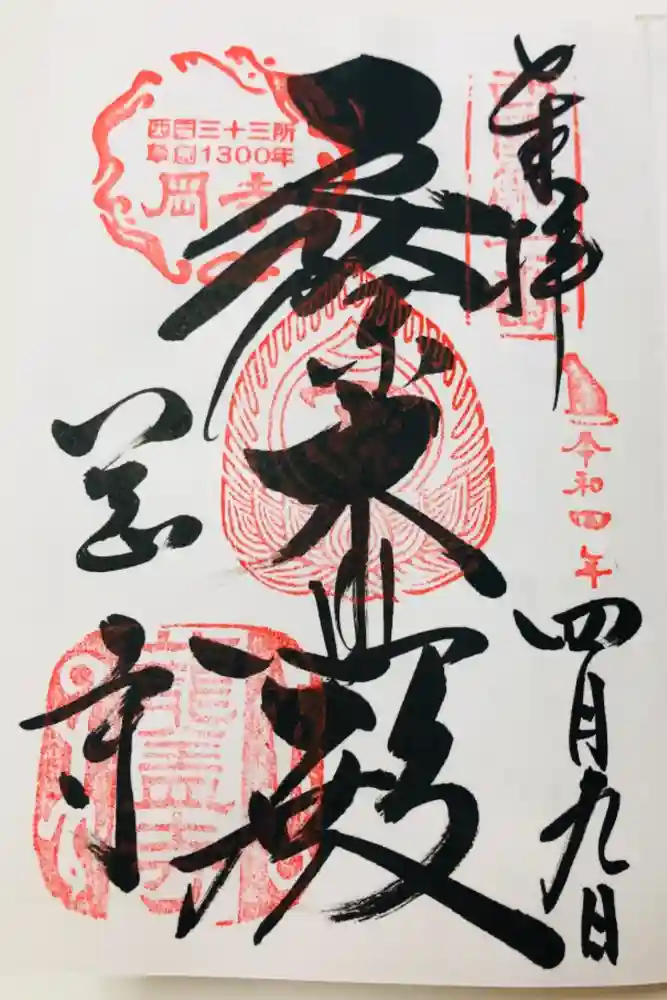 奉拝
令和四年
四月九日
殿
西国三十三所
草創1300年
岡寺
岡寺
龍蓋寺